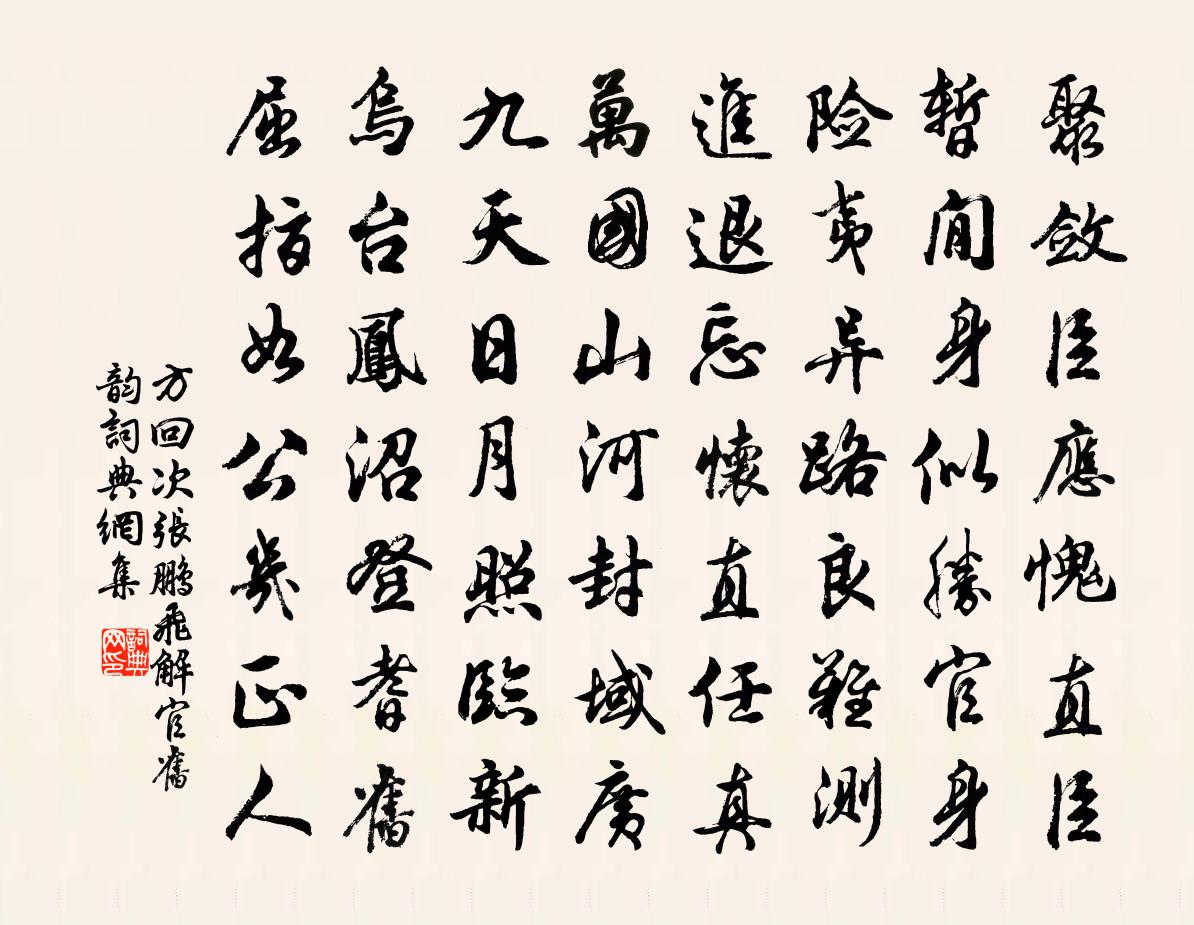 聚斂臣應愧直臣
暫閒身似勝官身
险夷异路良難測
進退忘懷直任真
萬國山河封域廣
九天日月照臨新
烏台鳳沼登耆舊
屈指如公幾正人
方回次張鵬飛解官舊
韵詞典網集
詞典网印